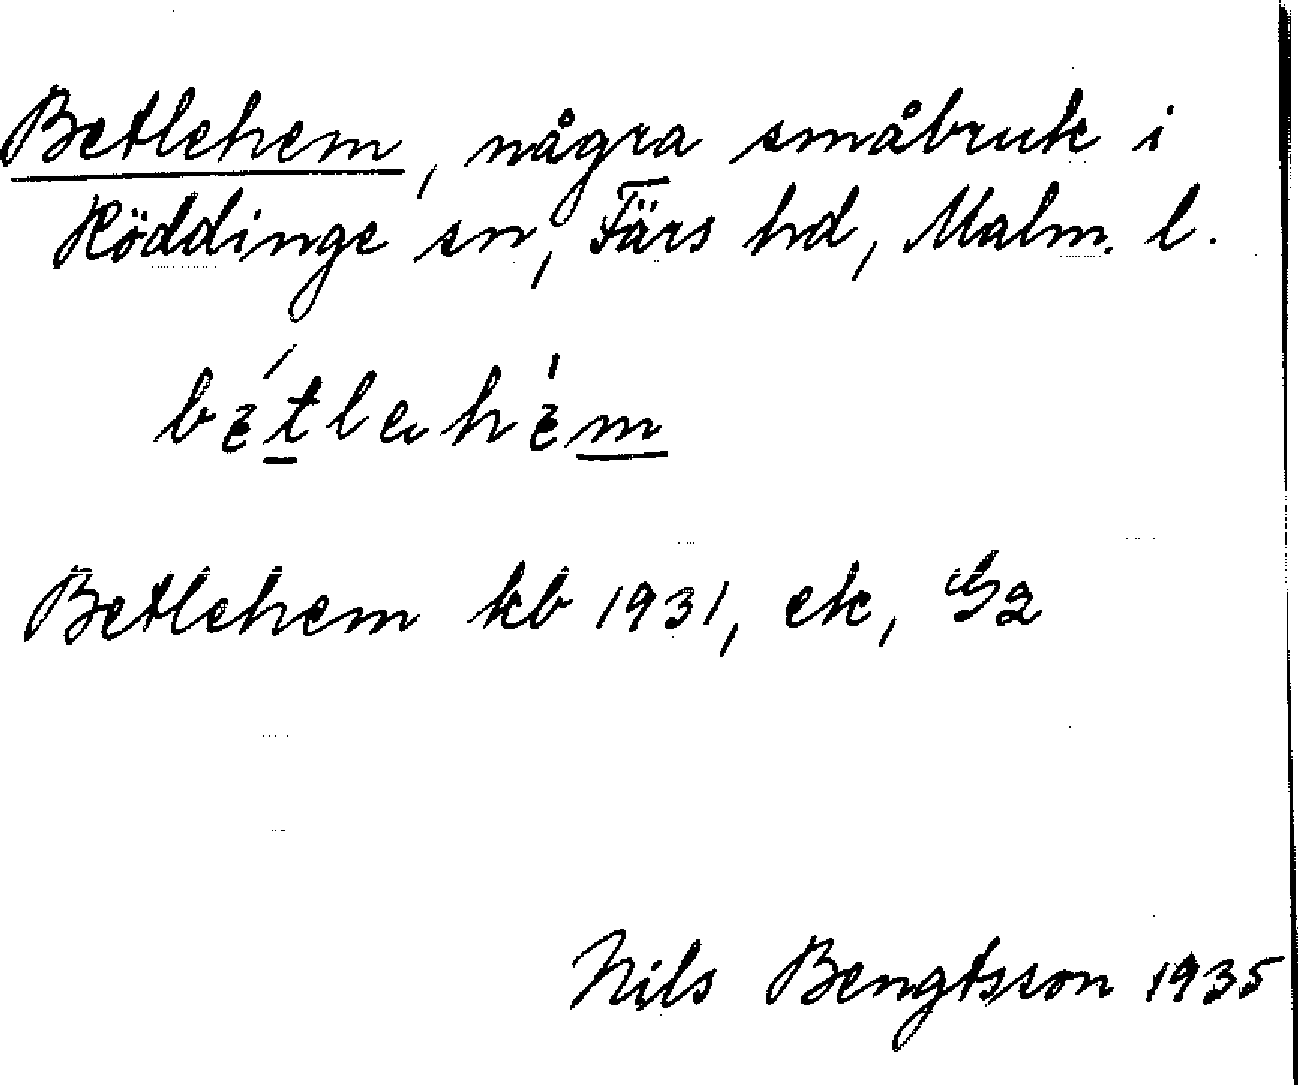 Betlehem, några småbruk i
Röddinge sn, Färs hd, Malm. l.
bétlehem
Betlehem kb 1931, ek, G2
Nils Bengtsson 1935